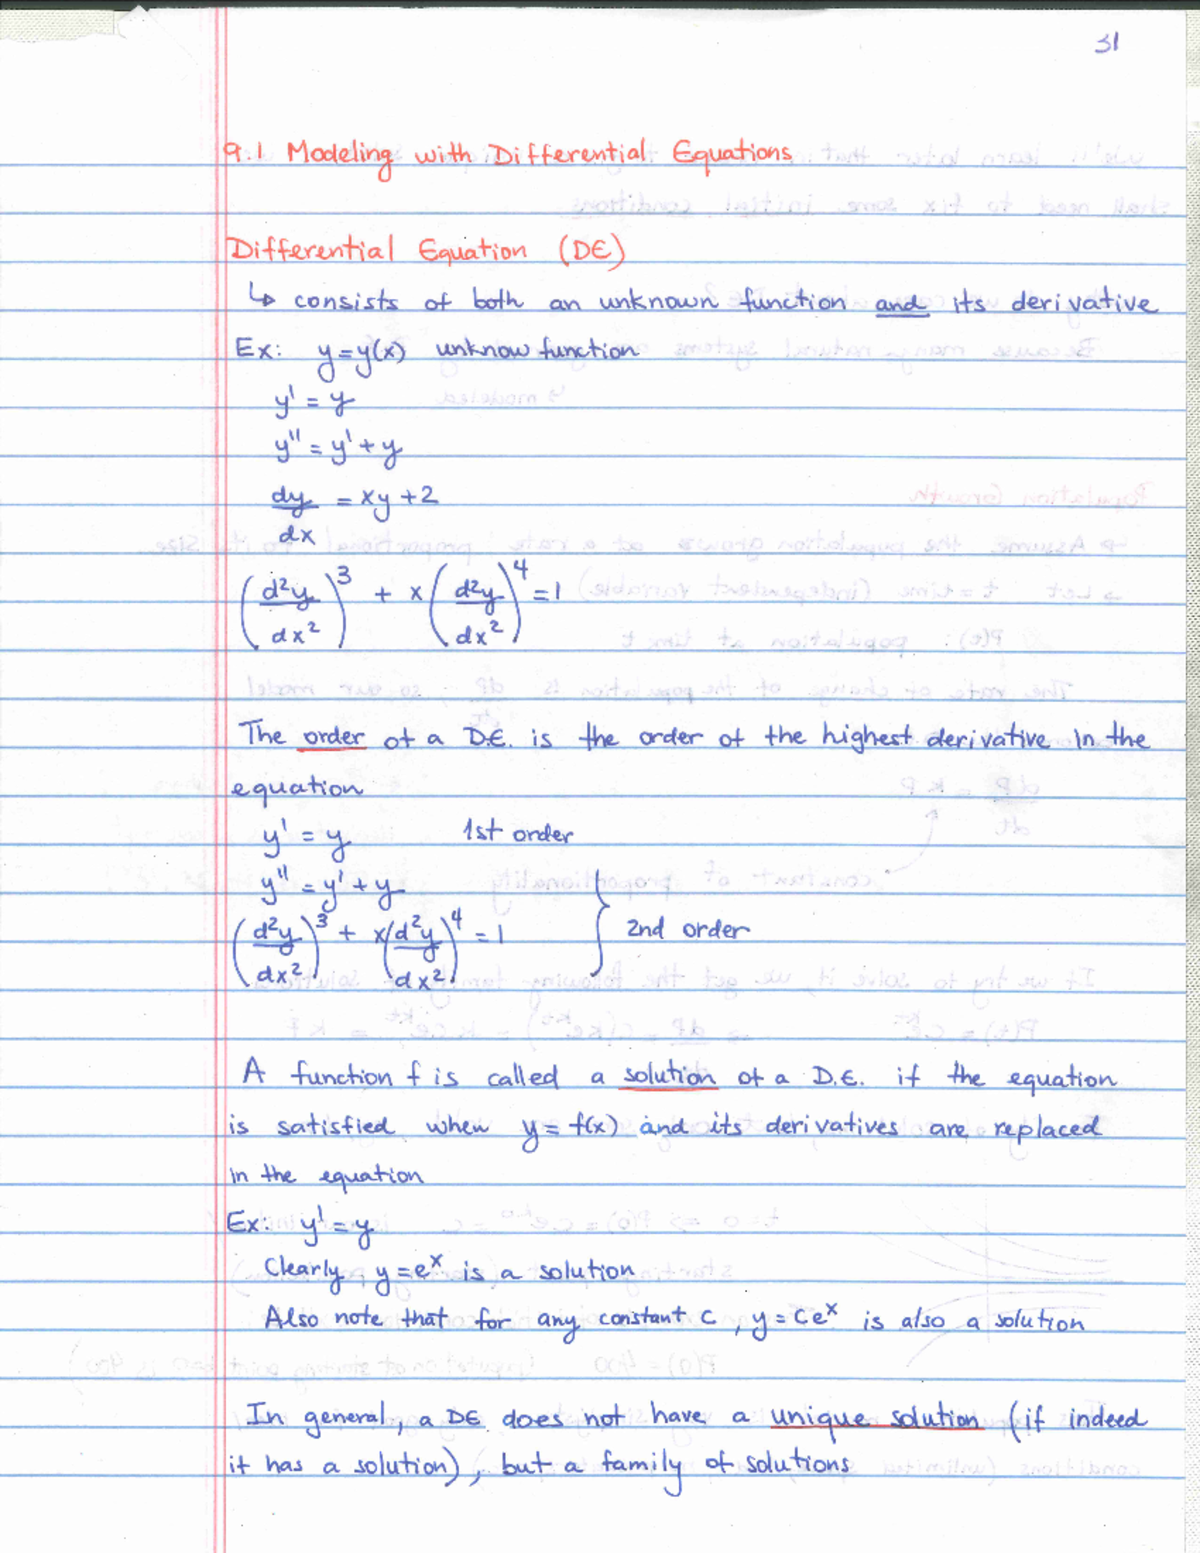 31
9.1 Modeling with Differential Equations
Differential Equation (DE)
↳ consists of both an unknown function and its derivative
Ex: y=y(x) unknow function
y' = y
y'' = y' + y
dy/dx = xy + 2
(d²y/dx²)³ + x(d²y/dx²)⁴ = 1
The order of a D.E. is the order of the highest derivative in the
equation
y' = y 1st order
y'' = y' + y
(d²y/dx²)³ + x(d²y/dx²)⁴ = 1 } 2nd order
A function f is called a solution of a D.E. if the equation
is satisfied when y = f(x) and its derivatives are replaced
in the equation
Ex: y' = y
Clearly y = eˣ is a solution
Also note that for any constant c, y = ceˣ is also a solution
In general, a DE does not have a unique solution (if indeed
it has a solution), but a family of solutions